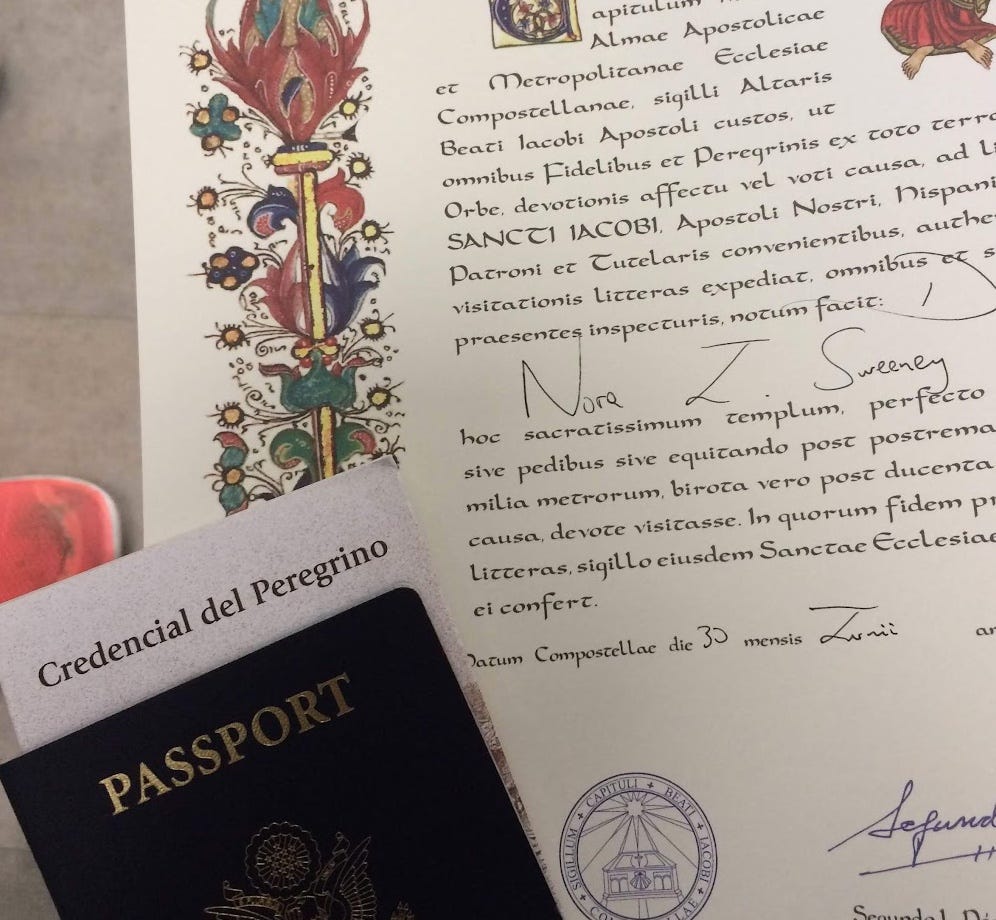 apitulum
Almae Apostolicae
et Metropolitanae Ecclesiae
Compostellanae, sigilli Altaris
Beati Iacobi Apostoli custos, ut
omnibus Fidelibus et Peregrinis ex toto terra
Orbe, devotionis affectu vel voti causa, ad Li
SANCTI IACOBI, Apostoli Nostri, Hispani
Patroni et Tutelaris convenientibus, authe
visitationis litteras expediat, omnibus et s
praesentes inspecturis, notum facit: D
Nora I Sweeney
hoc sacratissimum templum, perfecto
sive pedibus sive equitando post postrema
milia metrorum, birota vero post ducenta
causa, devote visitasse. In quorum fidem pr
litteras, sigillo eiusdem Sanctae Ecclesiae
ei confert.
Datum Compostellae die 30 mensis Iunii an
SIGILLUM + CAPITULI + BEATI + IACOBI +
Segund
Segundo L. Pé
Credencial del Peregrino
PASSPORT